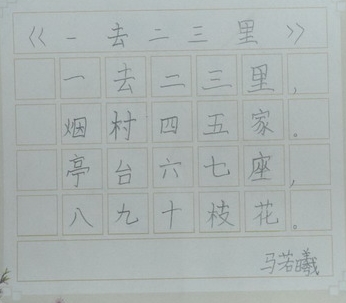 《一去二三里》
一去二三里，
烟村四五家。
亭台六七座，
八九十枝花。
马若曦